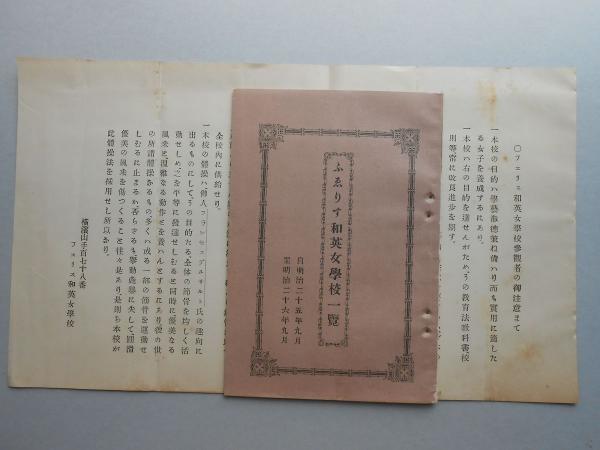 〇フエリス和英女學校參觀者の御注意まで
一本校の目的ハ學藝並德兼ね備ハり而も實用に適した
る女子を養成するにあり
一本校ハ右の目的を達せんため、教育法敎科書、校
用等常に改良進歩を期す
ふゑりす和英女學校一覽
自明治二十五年九月
至明治二十六年九月
全校內に供給せり
一本校の體操ハ佛人フランセスデルサルト氏の趣向に
出るものにして、の目的たる全体の筋骨を均しく活
動せしめ、之を平等に發達せしむると同時に優美なる
風采と溫雅なる動作とを養ハんとするにあり彼の世
の所謂體操なるもの多くハ或る一部の筋骨を運動せ
しむるに止まるか否らざるも擧動急暴に失して圓滑
優美の風采を傷つくること往々是あり是則ち本校が
此體操法を採用せし所以なり
橫濱山手百七十八番
フェリス和英女學校